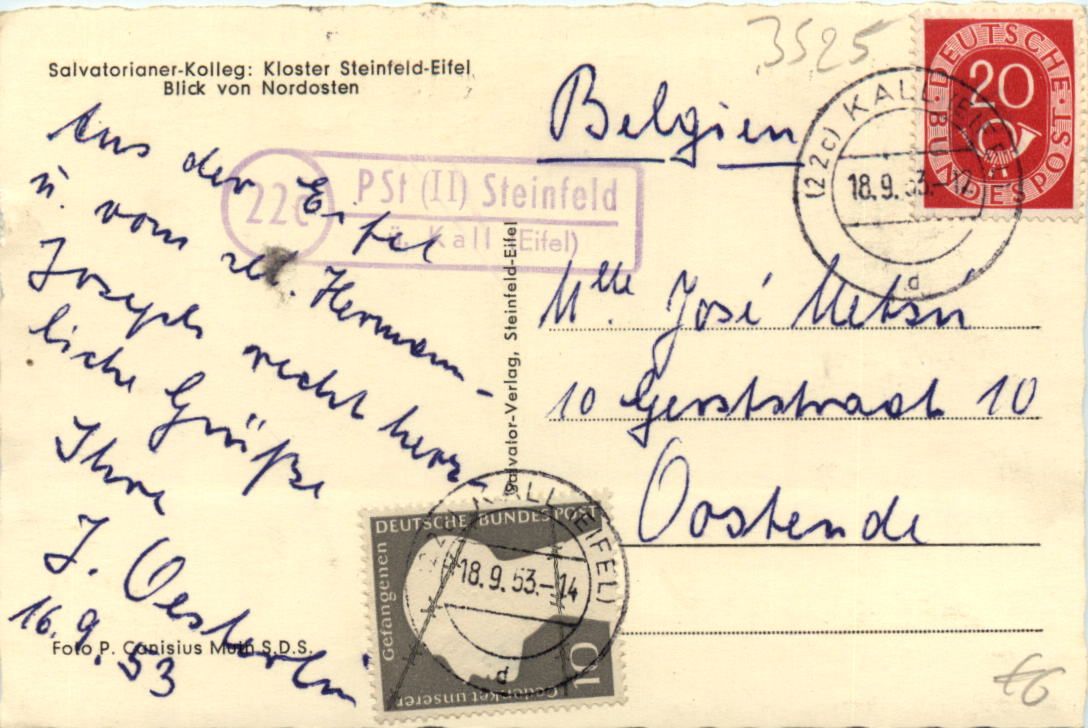 Salvatorianer-Kolleg: Kloster Steinfeld-Eifel
Blick von Nordosten
Aus der Eifel
u. vom sel. Hermann-
Joseph recht herz-
liche Grüße
Ihre
J.
16.9.53
Foto P. Canisius Muth S.D.S.
22c
PSt (II) Steinfeld
ü. Kall (Eifel)
Salvator-Verlag, Steinfeld-Eifel
3525
DEUTSCHE BUNDESPOST
20
(22c) KALL (EIFEL)
18.9.53.-14
d
Belgien
Mlle José
10 Gerststraat 10
Oostende
DEUTSCHE BUNDESPOST
Gedenket unserer Gefangenen
10
(22c) KALL (EIFEL)
18.9.53.-14
d